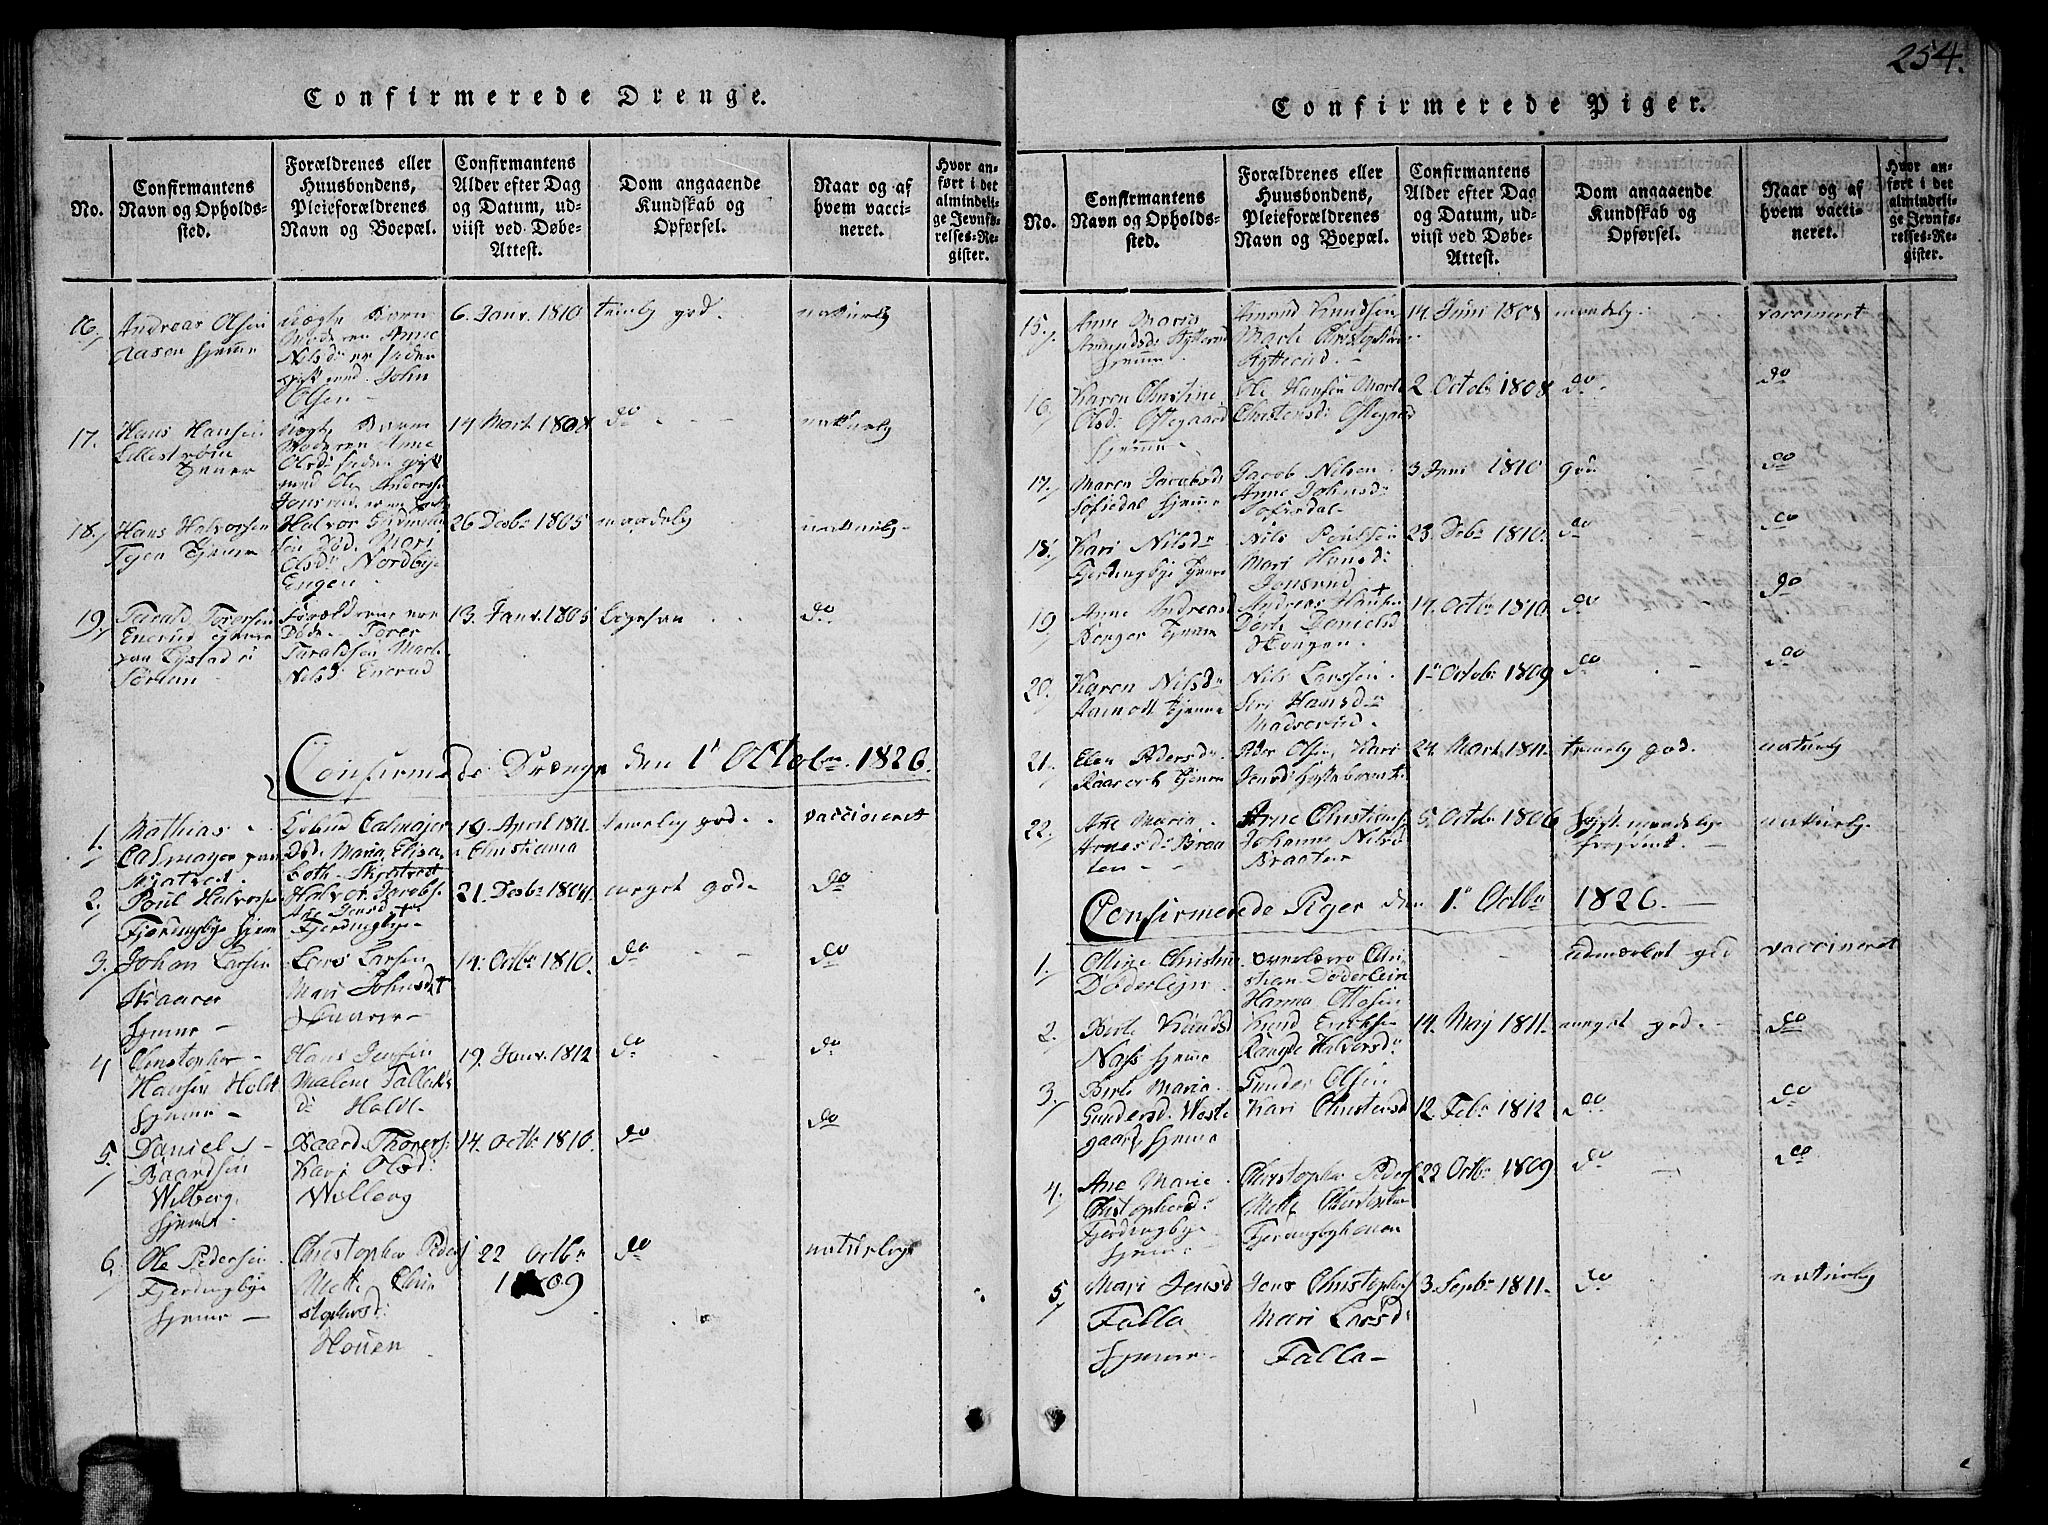 254.
Confirmerede Drenge.
No.
Confirmantens
Navn og Opholds-
sted.
Forældrenes eller
Huusbondens,
Pleieforældrenes
Navn og Boepæl.
Confirmantens
Alder efter Dag
og Datum, ud-
viist ved Døbe-
Attest.
Dom angaaende
Kundskab og
Opførsel.
Naar og af
hvem vacci-
neret.
Hvor an-
ført i det
almindeli-
ge Jevnfø-
relses-Re-
gister.
16.
Andreas Olsen
Aasen hjeme
uægte Barn
Moderen Anne
Nilsd: er siden
gift med John
Olsen
6. Janv. 1810
temlig god.
naturlig
17.
Hans Hansen
Lillestrøm
tjener
uægte Barn
Moderen Anne
Olsd: siden gift
med Ole Anders
14 Mart. 1808
do
naturlig
18.
Hans Halvorsen
tjener
Halvor
død. Mari
Olsd: Nordbye
Engen
26 Decbr 1805
maadelig
naturlig
19.
Tarald Torersen
Enerud tjener
paa
Forældrene
Døde. Torer
Taraldsen Marte
Nilsd: Enerud
13. Janv. 1805
ligesaa
do
Confirmede Drenge den 1 Octobr. 1826.
1.
Mathias
Calmeyer paa
Calmajer
Død. Maria Elisa-
beth
19 April 1811
Christiania
temelig god.
vaccineret
2.
Poul Halvors
Fjerdingbye hjem
Halvor Jacobs
Ane Jensd
Fjerdingbye
21. Decbr 1804
meget god
do
3.
Johan Larsen
Skaarer
hjeme
Lars Larsen
Mari Johnsd
Skaarer
14. Octbr 1810.
do
do
4
Christopher
Hansen Holdt
hjeme
Hans Jensen
Malene Fallak
d: Holdt
19. Janv. 1812
do
do
5.
Daniel
Baardsen
Wilberg
hjeme
Baard Thorers
Kari Olsd:
Willberg
14. Octbr 1810.
do
do
6.
Ole Pedersen
Fjerdingbye
hjeme
Christopher Peders
Mette Chri
stophersd:
Houen
22 Octbr
1809
do
naturlige
Confirmerede Piger.
No.
Confirmantens
Navn og Opholds-
sted.
Forældrenes eller
Huusbondens,
Pleieforældrenes
Navn og Boepæl.
Confirmantens
Alder efter Dag
og Datum, ud-
viist ved Døbe-
Attest.
Dom angaaende
Kundskab og
Opførsel.
Naar og af
hvem vacci-
neret.
Hvor an-
ført i det
almindeli-
ge Jevnfø-
relses-Re-
gister.
15.
Anne Maria
Amundsd: Rytterud
hjeme
Amund Knudsen
Marte Christophers
Rytterud.
14 Juni 1808
maadelig.
vaccineret
16.
Karen Christine
Olsd: Ostegaard
hjeme
Ole Hansen Marte
Christensd: Ostegaard
2. Octobr 1808.
do
do
17.
Maren Jacobsd
Sofiedal hjeme
Jacob Nilsen
Anne Johnsd:
Sofiedal
3 Juni 1810
god
do
18.
Kari Nilsd:
Fjerdingbye tjener
Nils Poulsen
Mari Hansd:
Jonsrud
23. Debr 1810.
do
do
19.
Anne Andreasd
Berger tjener
Andreas Hansen
Dorte Danielsd
Skougen
14. Octbr 1810.
do
do
20.
Karen Nilsd:
Aamodt tjener
Nils Larsen
Siri Hansd:
Madserud
1 Octobr 1809
do
do
21.
Elen Pedersd:
tjener
Peder Olsen Kari
Jensd
24. Mart. 1811.
temelig god.
naturlig
22.
Ane Maria
Arnesd: Braa
ten
Arne Christians
Johanne Nilsd
Braaten
5. Octbr 1806
naturlig
Confirmerede Piger den 1. Octbr 1826.
1.
Oline Christin
Døderlejn
Chri
stian Døderlein
Hanna Ottosen
udmærket god
vaccineret
2.
Berte Knudsd
Næss hjeme
Knud Eriks
Rangde Halvorsd:
14. Maj 1811.
meget god.
do
3.
Berte Maria
Gundersd. Weste
gaard hjeme
Gunder Olsen
Kari Christensd
12. Febr 1812
do
do
4.
Ane Marie
Christophersd:
Fjerdingbye
hjeme
Christopher Peders
Mette Christopher
Fjerdingbyhouen
22 Octbr 1809
do
do
5.
Mari Jensd
Falla
hjeme
Jens Christophers
Mari Larsd:
Falla
3. Septbr 1811.
do
naturlig